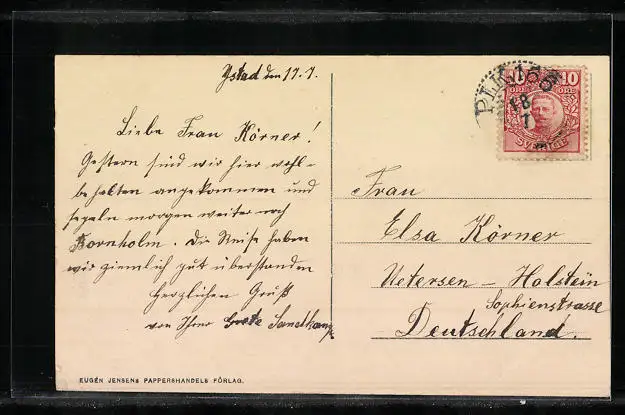 Ystad den 17.7.
Liebe Frau Körner!
Gestern sind wir hier wohl-
behalten angekommen und
segeln morgen weiter nach
Bornholm. Die Reise haben
wir ziemlich gut überstanden
Herzlichen Gruß
von Ihrer Grete
Frau
Elsa Körner
Uetersen – Holstein
Sophienstrasse
Deutschland.
PLK 166
18
7
10 10
ÖRE ÖRE
SVERIGE
EUGÉN JENSENS PAPPERSHANDELS FÖRLAG.